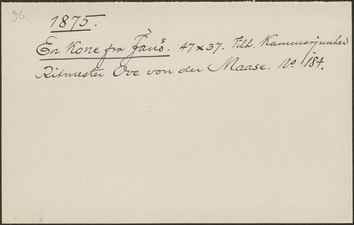 96.
1875.
En Kone fra Fanö. 47x37. Tilh. Kammerjunker
Ritmester Ove von der Maase. No 184.